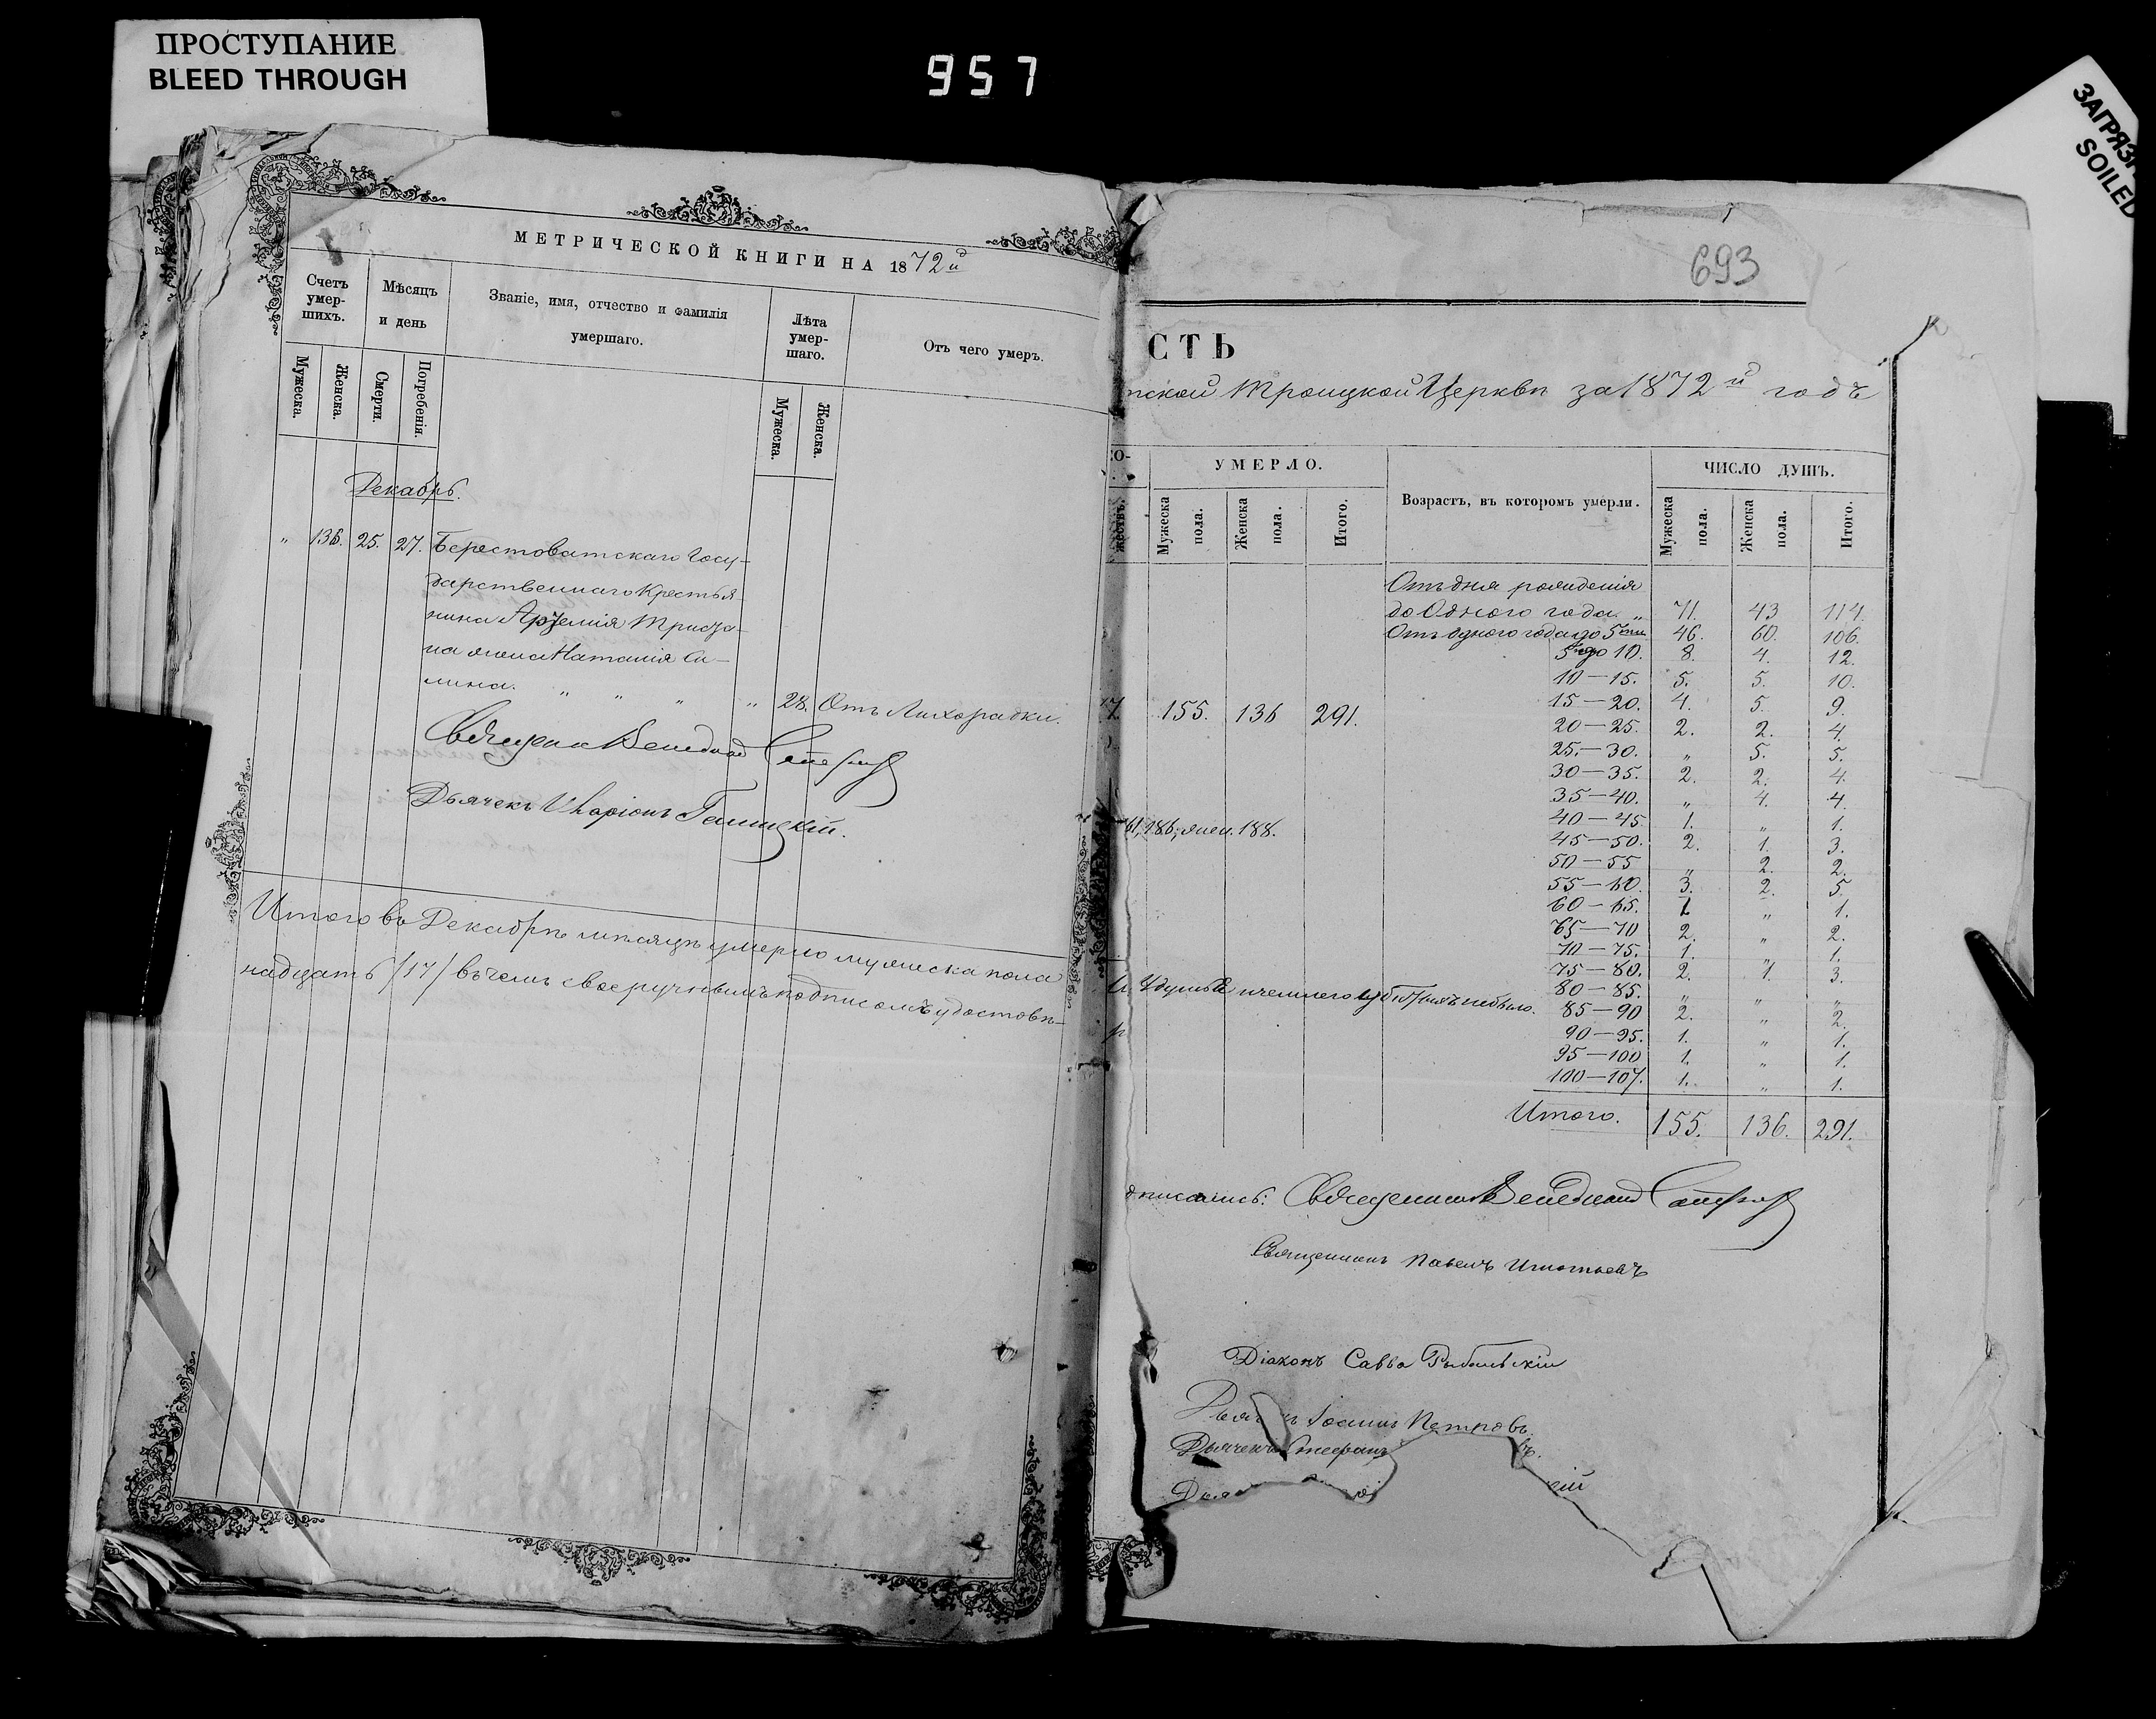 ПРОСТУПАНИЕ
BLEED THROUGH
957
ЗАГРЯЗН
SOILED
МЕТРИЧЕСКОЙ КНИГИ НА 1872й
Счетъ умер-шихъ.
Мѣсяцъ и день
Званіе, имя, отчество и фамилія умершаго.
Лѣта умер-шаго.
Отъ чего умеръ.
Мужеска.
Женска.
Смерти.
Погребенія.
Мужеска.
Женска.
Декабрь.
„ 136. 25. 27. Берестоватскаго Госу-
дарственнаго Крестья
нина
жена Наталія
„ „ „ „ 28. Отъ Лихорадки.
Дьячекъ Иларіонъ
Итого въ Декабрѣ мѣсяцѣ умерло мужеска пола
надцать (17) въ чемъ своеручнымъ подписомъ удостовѣ-
693
СТЬ
ской Троицкой Церкви за 1872й годъ
УМЕРЛО.
ЧИСЛО ДУШЪ.
Мужеска пола.
Женска пола.
Итого.
Возрастъ, въ которомъ умерли.
Мужеска пола.
Женска пола.
Итого.
Отъ дня рожденія
до Одного года „ 71. 43 114.
Отъ одного года до 5ти 46. 60. 106.
5 до 10. 8. 4. 12.
10—15. 5. 5. 10.
15—20. 4. 5. 9.
155. 136 291.
20—25. 2. 2. 4.
25—30. „ 5. 5.
30—35. 2. 2. 4.
35—40. „ 4. 4.
40—45 1. „ 1.
186; жен. 188.
45—50. 2. 1. 3.
50—55 „ 2. 2.
55—60. 3. 2. 5.
60—65. 1 „ 1.
65—70 2. „ 2.
70—75. 1. „ 1.
75—80. 2. 1. 3.
80—85. „ „ „
небыло.
85—90 2. „ 2.
90—95. 1. „ 1.
95—100 1. „ 1.
100—107. 1. „ 1.
Итого. 155. 136. 291.
дписались:
Священникъ Павелъ Игнатьевъ
Діаконъ Савва
Іоаннъ Петровъ.
Дьячекъ Стефанъ въ.
Дья ій